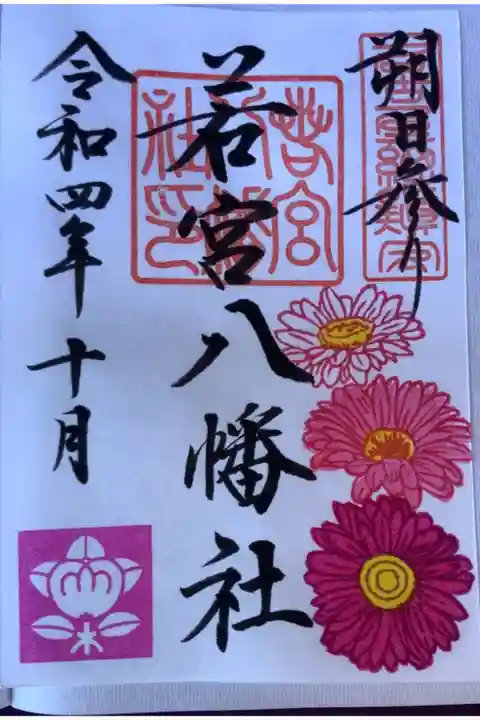 朔日参り
若宮八幡社
若宮八幡社印
令和四年 十月